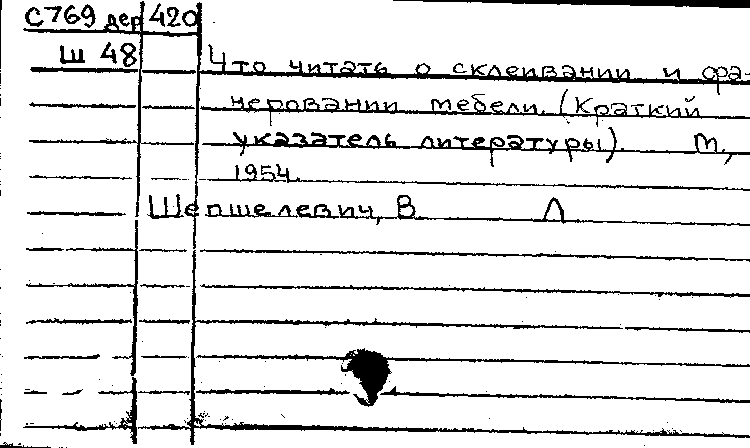 С769 дер 420
Ш 48 Что читать о склеивании и фа-
неровании мебели. (Краткий
указатель литературы). М.,
1954.
Шепшелевич, В. Л.